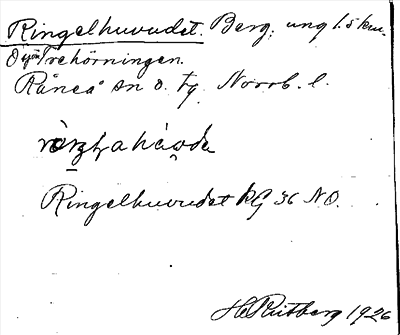 Ringelhuvudet. Berg, ung 1.5 km.
O om Trehörningen.
Råneå sn o. tg. Norrb. l.
Ringelhuvudet kG 36 NO.
H. Ruitberg 1926